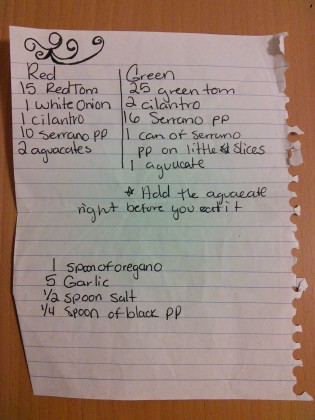 Red
15 Red Tom
1 white Onion
1 cilantro
10 Serrano pp
2 aguacates
Green
25 green tom
2 cilantro
16 Serrano pp
1 can of Serrano
pp on little slices
1 aguacate
* Add the aguacate
right before you eat it
1 spoon of oregano
5 Garlic
1/2 spoon salt
1/4 spoon of black pp